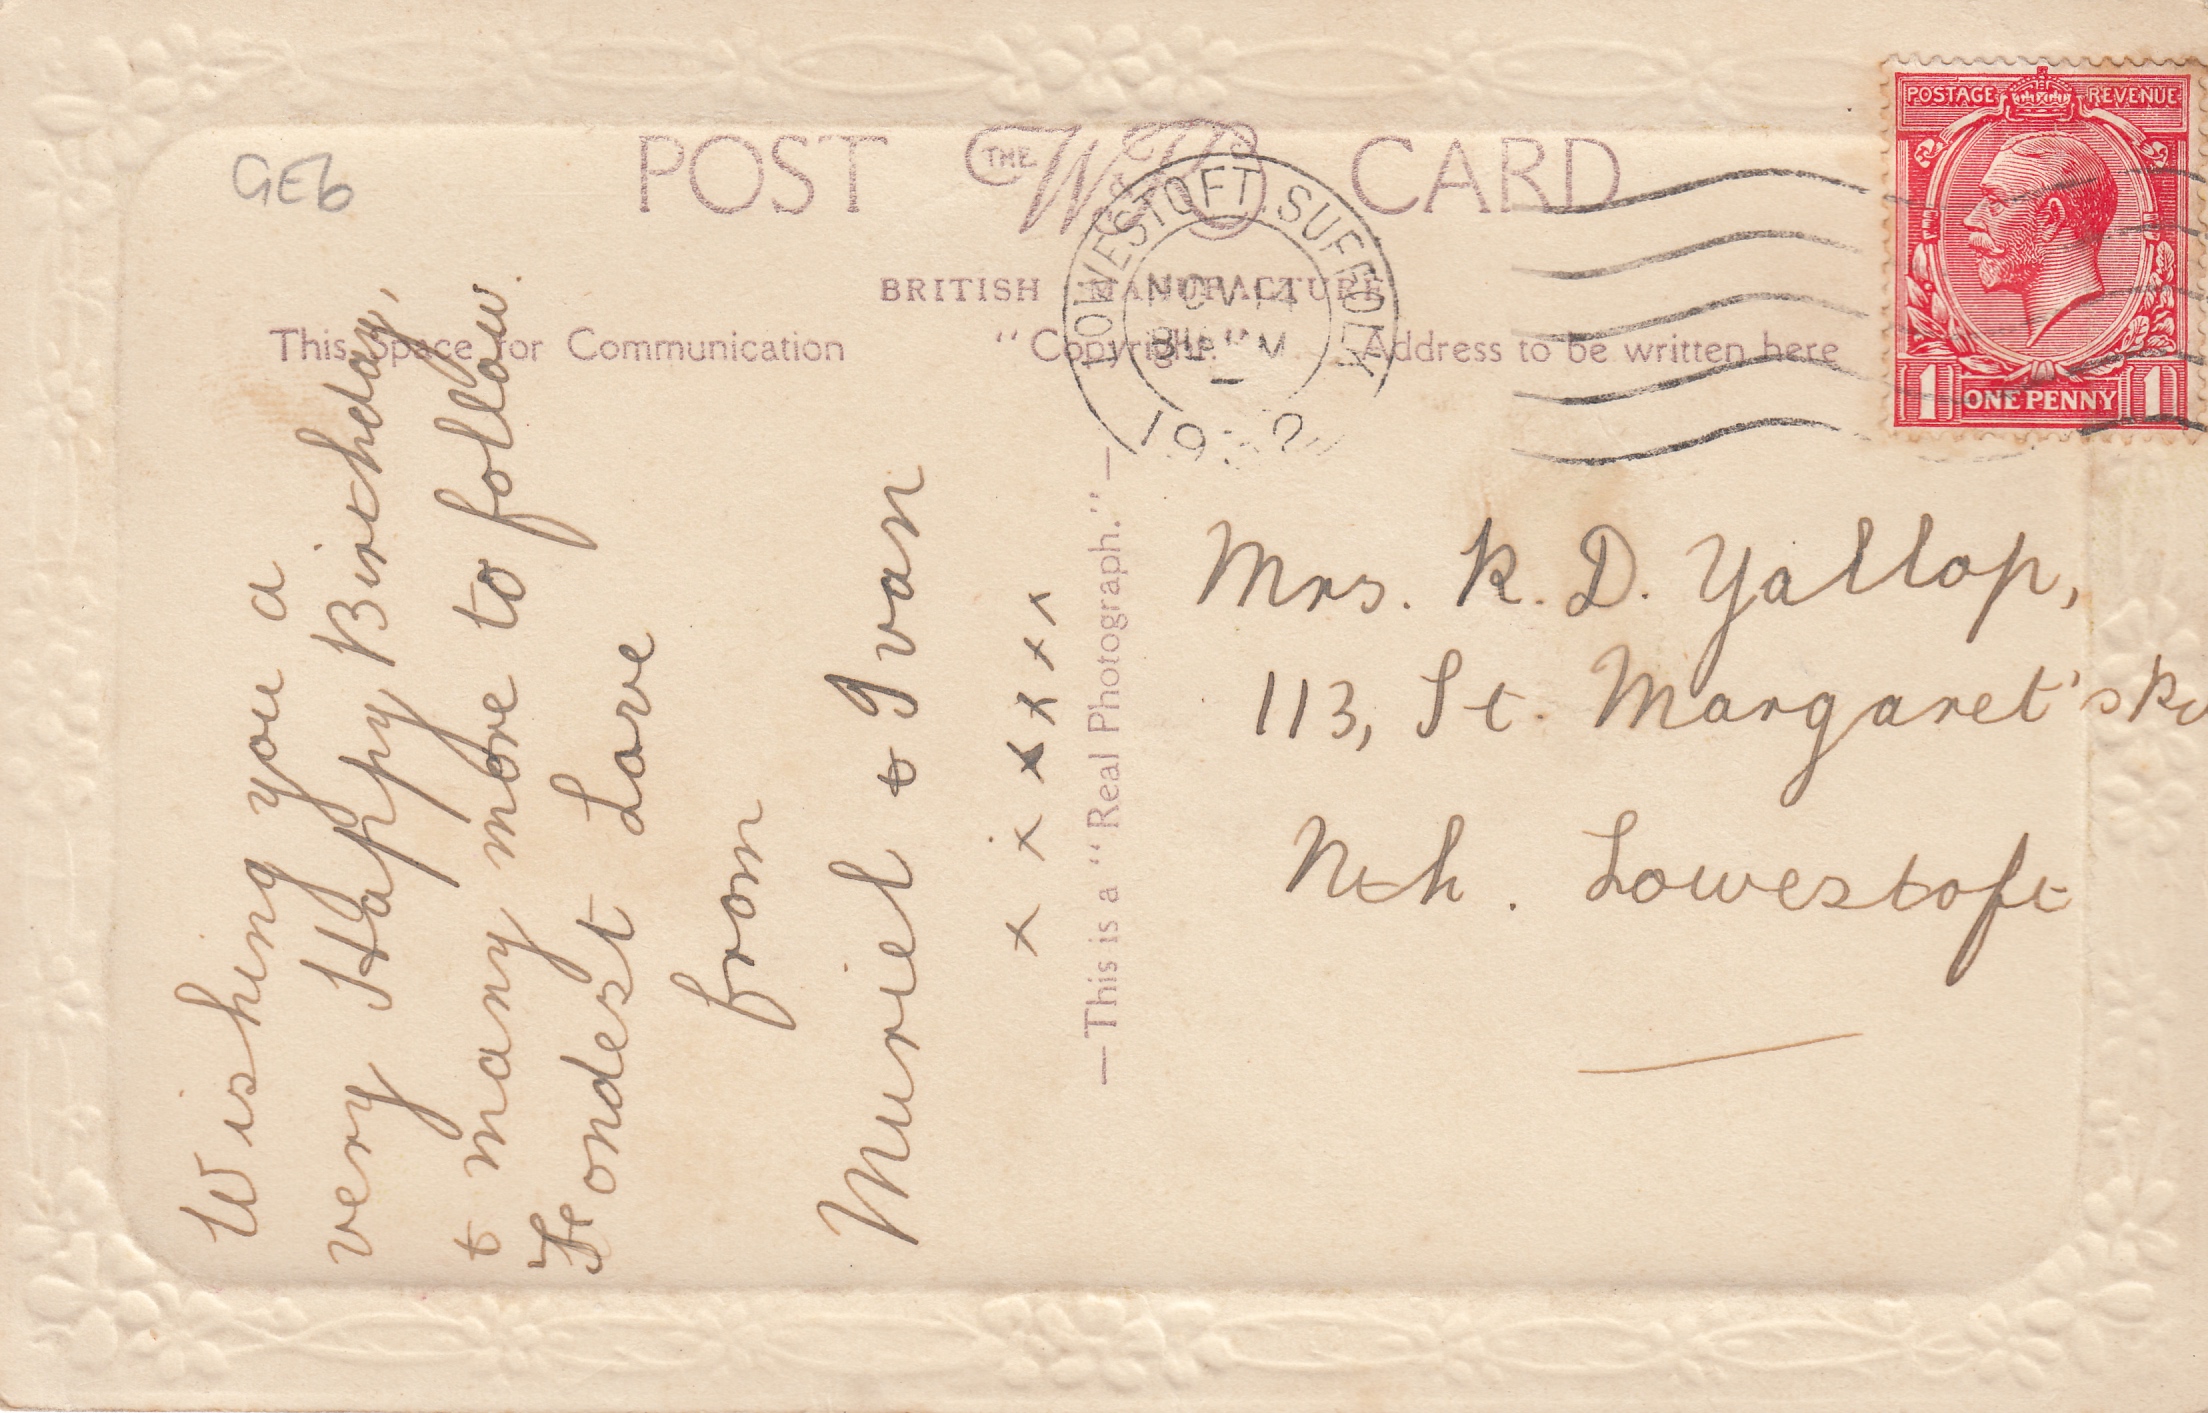 GE6
POST THE W&K CARD
BRITISH MANUFACTURE
This Space for Communication "Copyright." Address to be written here
LOWESTOFT SUFFOLK
NOV 14
19
POSTAGE REVENUE
1 ONE PENNY 1
Wishing you a
very Happy Birthday,
& many more to follow.
Fondest Love
from
Muriel & Ivan
x x x x x x
—This is a "Real Photograph."—
Mrs. R. D. Yallop,
113, St. Margaret's Rd
Nth. Lowestoft